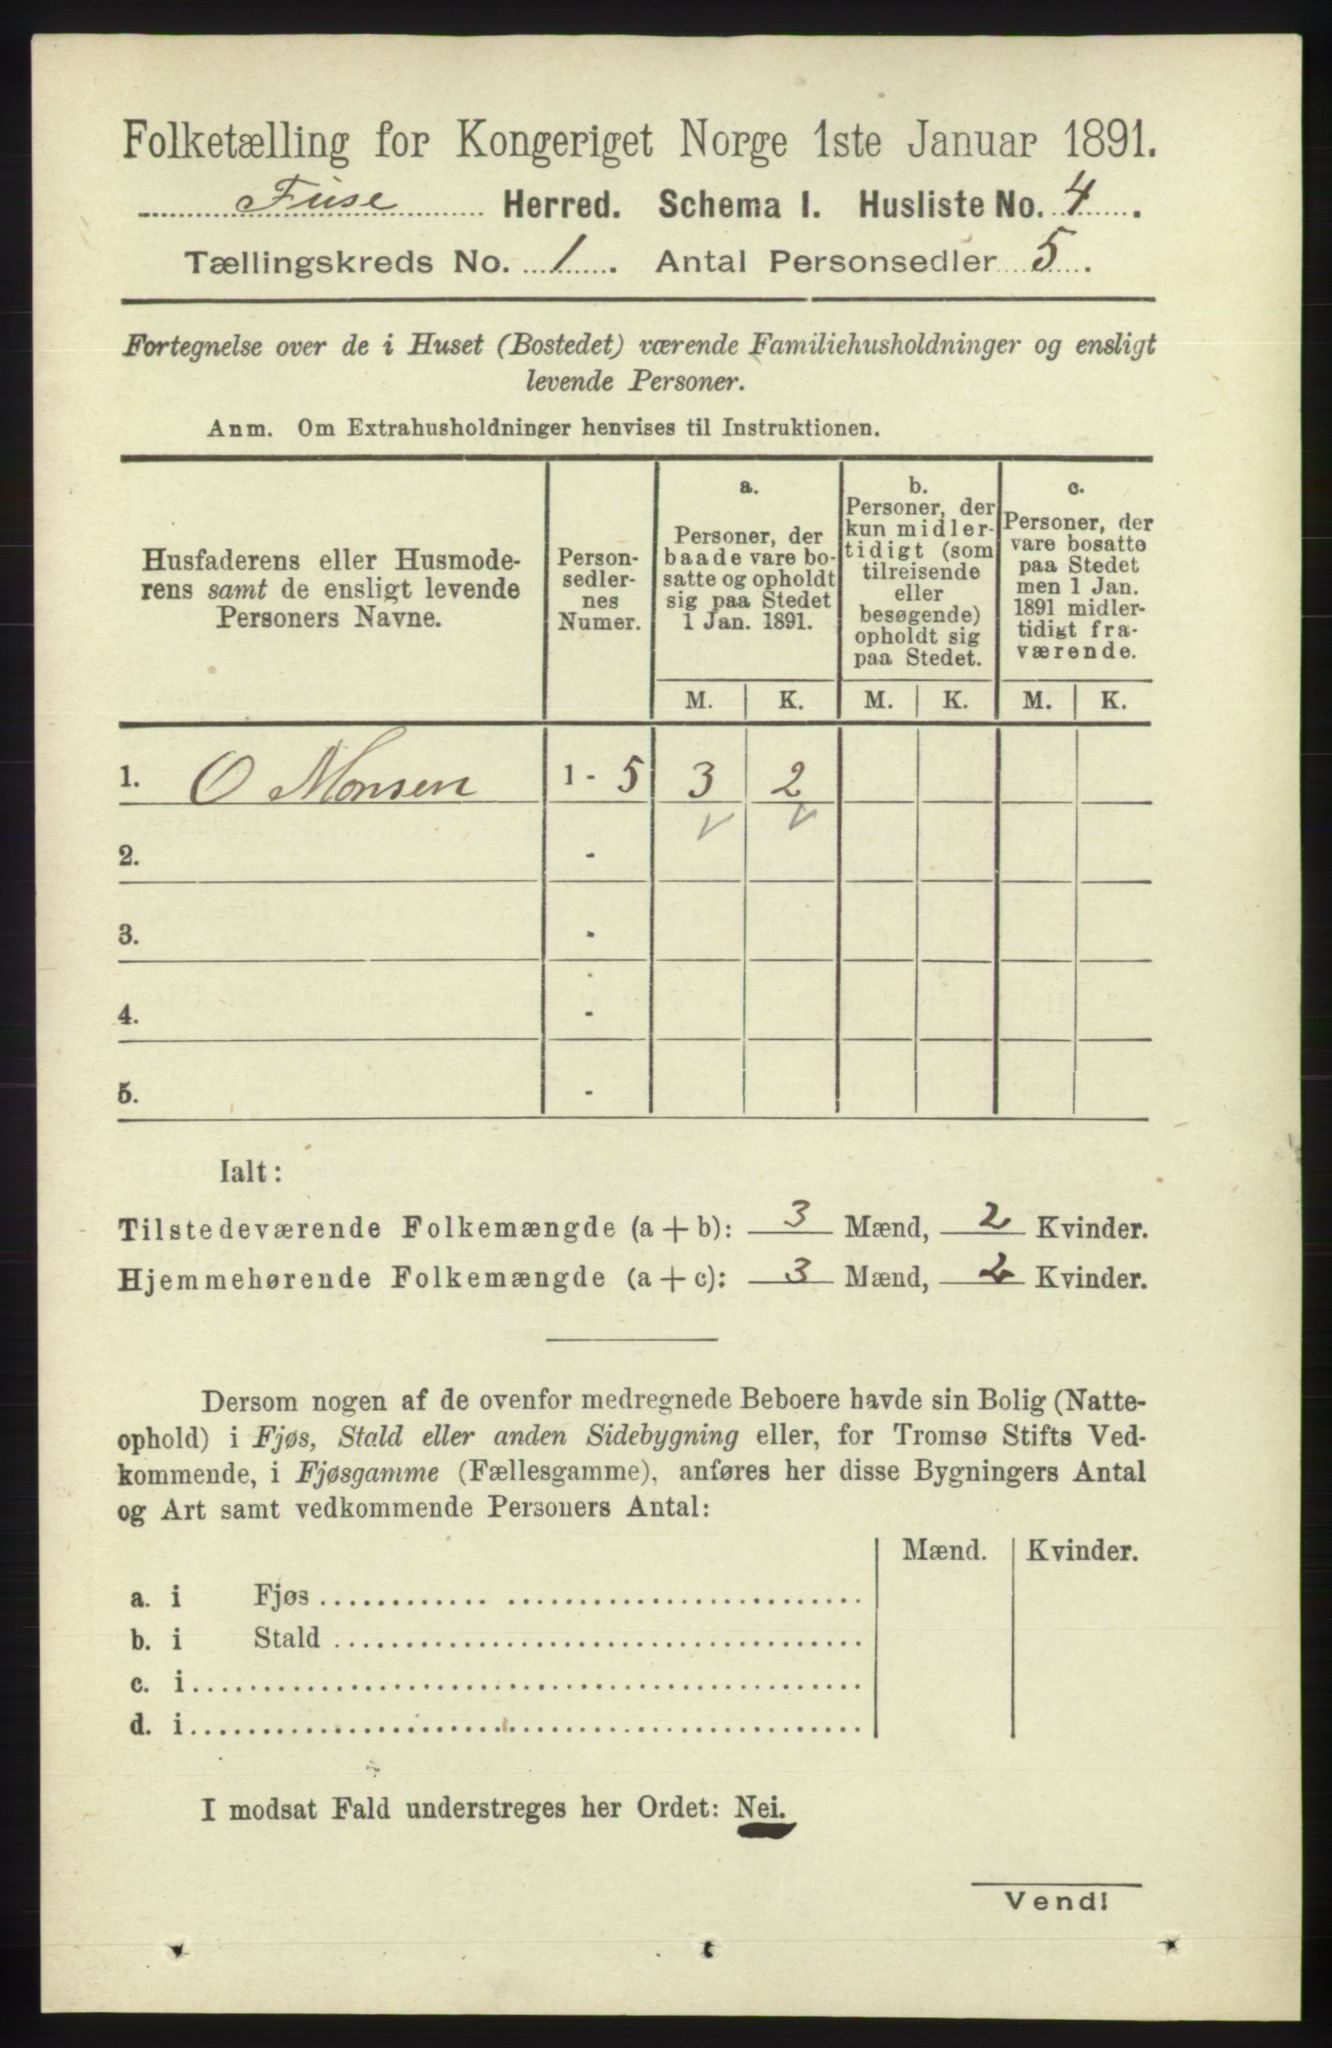 Folketælling for Kongeriget Norge 1ste Januar 1891.
Fuse Herred. Schema I. Husliste No. 4.
Tællingskreds No. 1. Antal Personsedler 5.
Fortegnelse over de i Huset (Bostedet) værende Familiehusholdninger og ensligt
levende Personer.
Anm. Om Extrahusholdninger henvises til Instruktionen.
Husfaderens eller Husmode-
rens samt de ensligt levende
Personers Navne.
Person-
sedler-
nes
Numer.
a.
Personer, der
baade vare bo-
satte og opholdt
sig paa Stedet
1 Jan. 1891.
b.
Personer, der
kun midler-
tidigt (som
tilreisende
eller
besøgende)
opholdt sig
paa Stedet.
c.
Personer, der
vare bosatte
paa Stedet
men 1 Jan.
1891 midler-
tidigt fra-
værende.
M. K. M. K. M. K.
1. O Monsen 1 - 5 3 2
2. -
3. -
4. -
5. -
Ialt:
Tilstedeværende Folkemængde (a + b): 3 Mænd, 2 Kvinder.
Hjemmehørende Folkemængde (a + c): 3 Mænd, 2 Kvinder.
Dersom nogen af de ovenfor medregnede Beboere havde sin Bolig (Natte-
ophold) i Fjøs, Stald eller anden Sidebygning eller, for Tromsø Stifts Ved-
kommende, i Fjøsgamme (Fællesgamme), anføres her disse Bygningers Antal
og Art samt vedkommende Personers Antal:
Mænd. Kvinder.
a. i Fjøs
b. i Stald
c. i
d. i
I modsat Fald understreges her Ordet: Nei.
Vend!